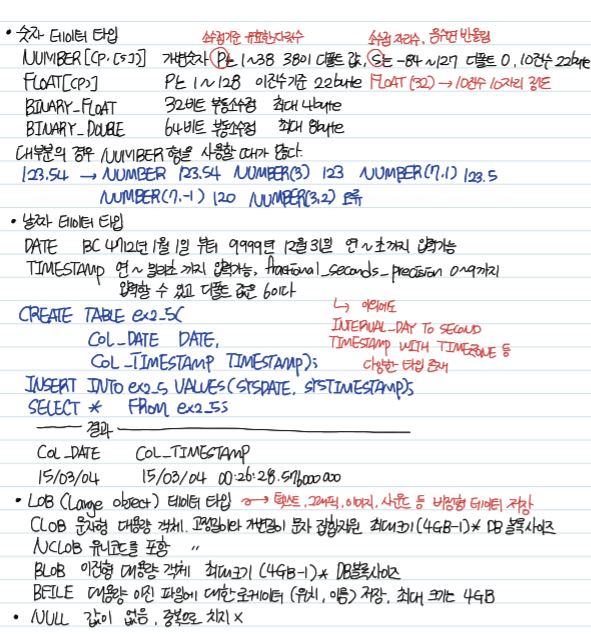 • 숫자 데이터 타입 소수점기준 유효한자릿수 소수점 자리수, 음수면 반올림
NUMBER[(P, [S])] 가변숫자 P는 1~38 38이 디폴트 값, S는 -84~127 디폴트 0, 10진수 22byte
FLOAT[(P)] P는 1~128 이진수기준 22byte FLOAT(32) → 10진수 10자리 정도
BINARY_FLOAT 32비트 부동소수점 최대 4byte
BINARY_DOUBLE 64비트 부동소수점 최대 8byte
대부분의 경우 NUMBER 형을 사용할 때가 많다.
123.54 → NUMBER 123.54 NUMBER(3) 123 NUMBER(7,1) 123.5
NUMBER(7,-1) 120 NUMBER(3,2) 오류
• 날짜 데이터 타입
DATE BC 4712년 1월 1일 부터 9999년 12월 31일 연~초까지 입력가능
TIMESTAMP 연~밀리초 까지 입력가능, fractional_seconds_precision 0~9까지
입력할 수 있고 디폴트 값은 6이다
CREATE TABLE ex2_5(
↳ 이외에도
COL_DATE DATE,
INTERVAL_DAY TO SECOND
TIMESTAMP WITH TIMEZONE 등
COL_TIMESTAMP TIMESTAMP);
다양한 타입 존재
INSERT INTO ex2_5 VALUES(SYSDATE, SYSTIMESTAMP);
SELECT * FROM ex2_5;
결과
COL_DATE COL_TIMESTAMP
15/03/04 15/03/04 00:26:28.576000000
• LOB (Large Object) 데이터 타입 → 텍스트, 그래픽, 이미지, 사운드 등 비정형 데이터 저장
CLOB 문자형 대용량 객체. 고정길이와 가변길이 문자 집합지원 최대크기 (4GB-1)* DB 블록사이즈
NCLOB 유니코드를 포함 〃
BLOB 이진형 대용량 객체 최대크기 (4GB-1)* DB블록사이즈
BFILE 대용량 이진 파일에 대한 로케이터 (위치, 이름) 저장, 최대 크기는 4GB
• NULL 값이 없음, 중복으로 치지 X